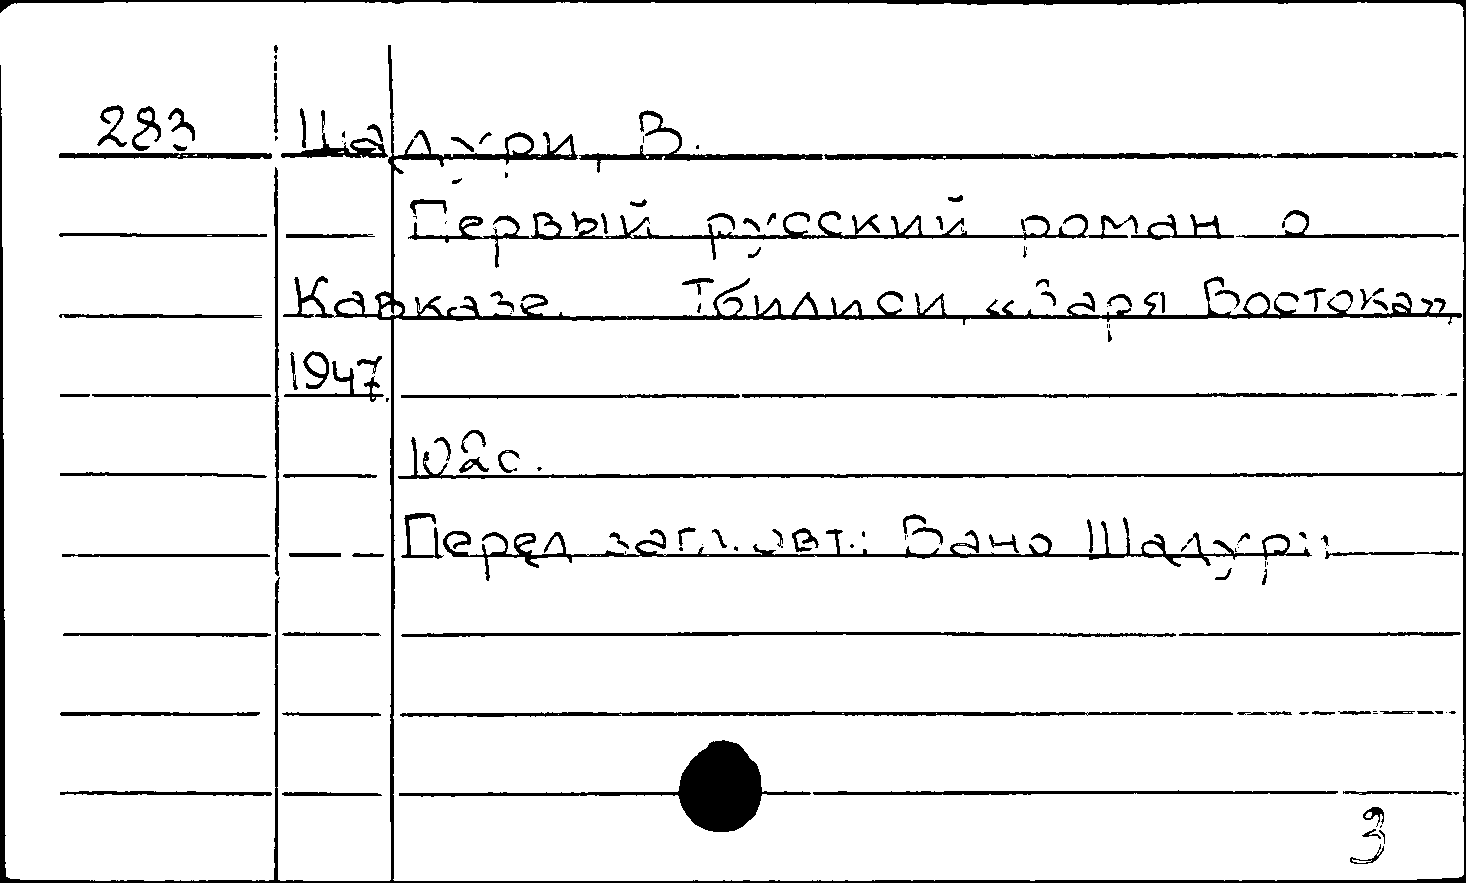 283 Шадури, В.
Первый русский роман о
Кавказе. Тбилиси, «Заря Востока»,
1947.
102 с.
Перед загл. авт.: Вано Шадури
3